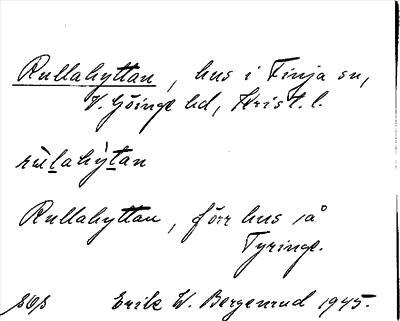 Rullahyttan, hus i Finja sn,
V. Göinge hd, Krist. l.
rùlahy̆tan
Rullahyttan, förr hus i å
Tyringe.
Erik W. Bergenrud 1945.